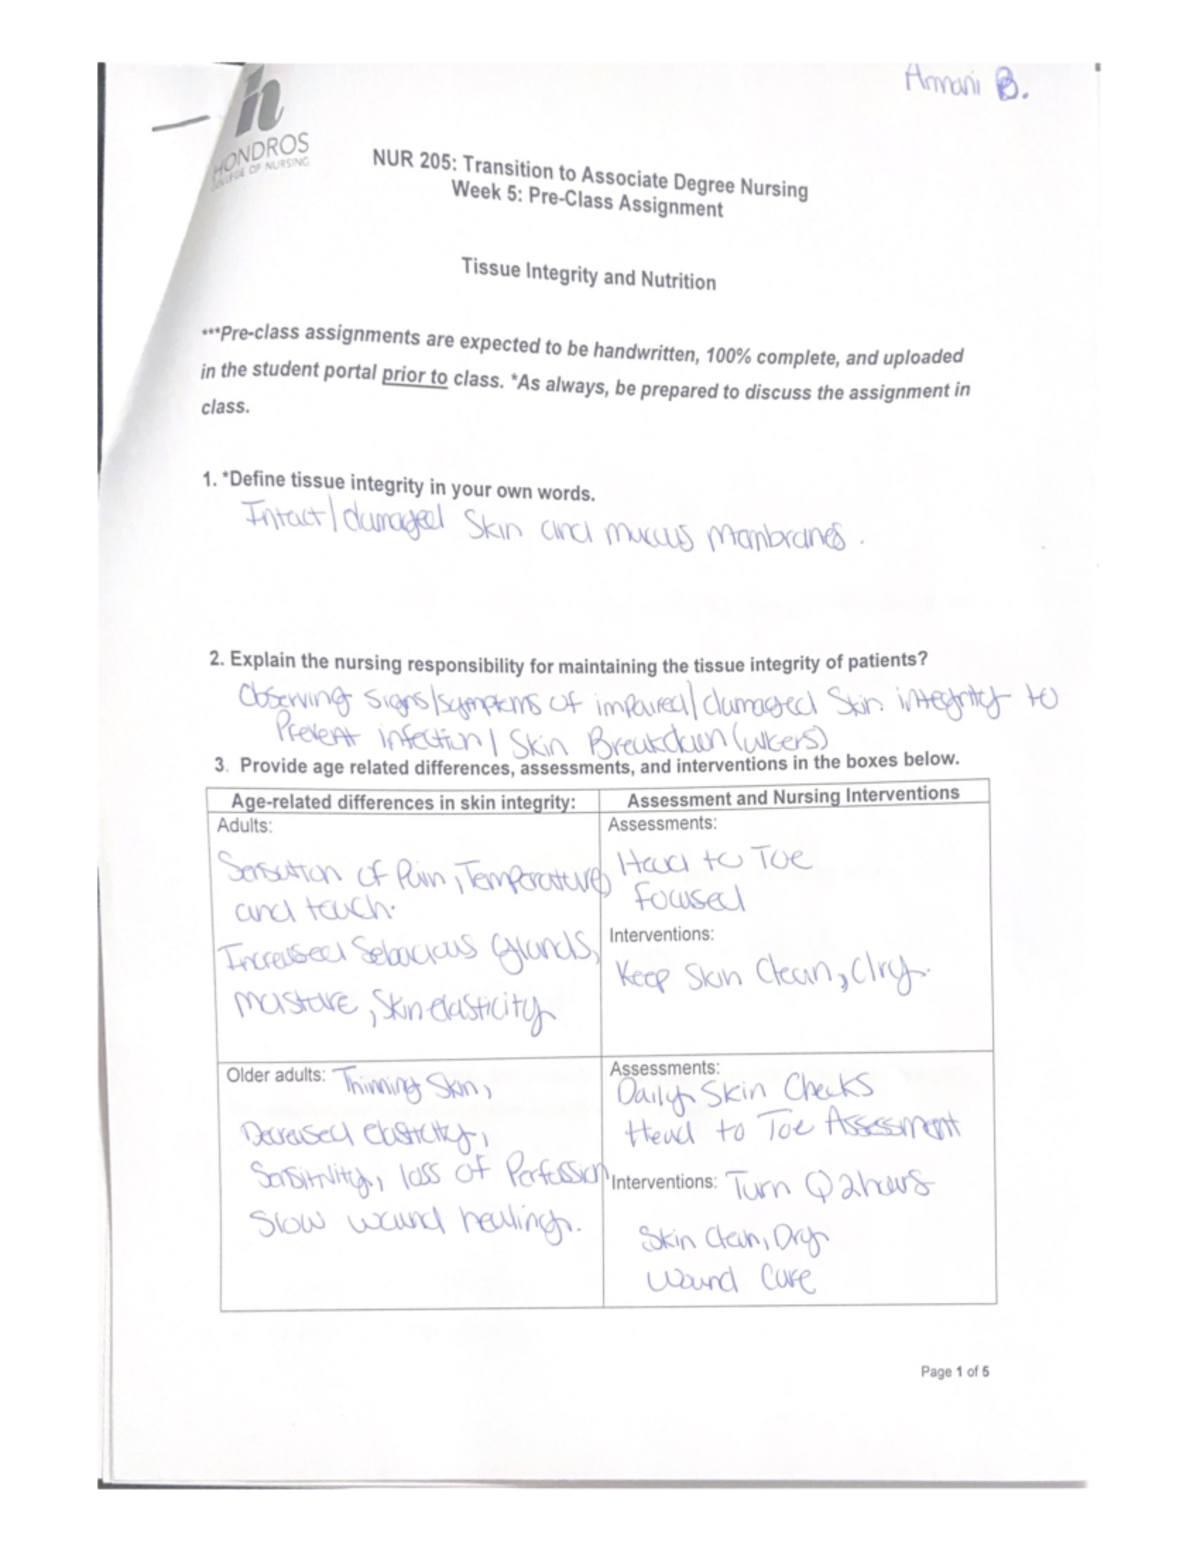 Armani B.
HONDROS
COLLEGE OF NURSING
NUR 205: Transition to Associate Degree Nursing
Week 5: Pre-Class Assignment
Tissue Integrity and Nutrition
***Pre-class assignments are expected to be handwritten, 100% complete, and uploaded
in the student portal prior to class. *As always, be prepared to discuss the assignment in
class.
1. *Define tissue integrity in your own words.
Intact/damaged Skin and mucus Membranes.
2. Explain the nursing responsibility for maintaining the tissue integrity of patients?
Observing signs/symptoms of impaired/damaged Skin integrity to
Prevent infection/ Skin Breakdown (ulcers)
3. Provide age related differences, assessments, and interventions in the boxes below.
Age-related differences in skin integrity: Assessment and Nursing Interventions
Adults:
Sensation of Pain, Temperature,
and touch.
Increased Sebacious Glands,
moisture, Skin elasticity
Assessments:
Head to Toe
Focused
Interventions:
Keep Skin Clean, dry.
Older adults: Thinning Skin,
Decreased elasticity,
Sensitivity, loss of Perfession
Slow wound healing.
Assessments:
Daily Skin Checks
Head to Toe Assessment
Interventions: Turn Q 2hours
Skin Clean, Dry
Wound Care
Page 1 of 5